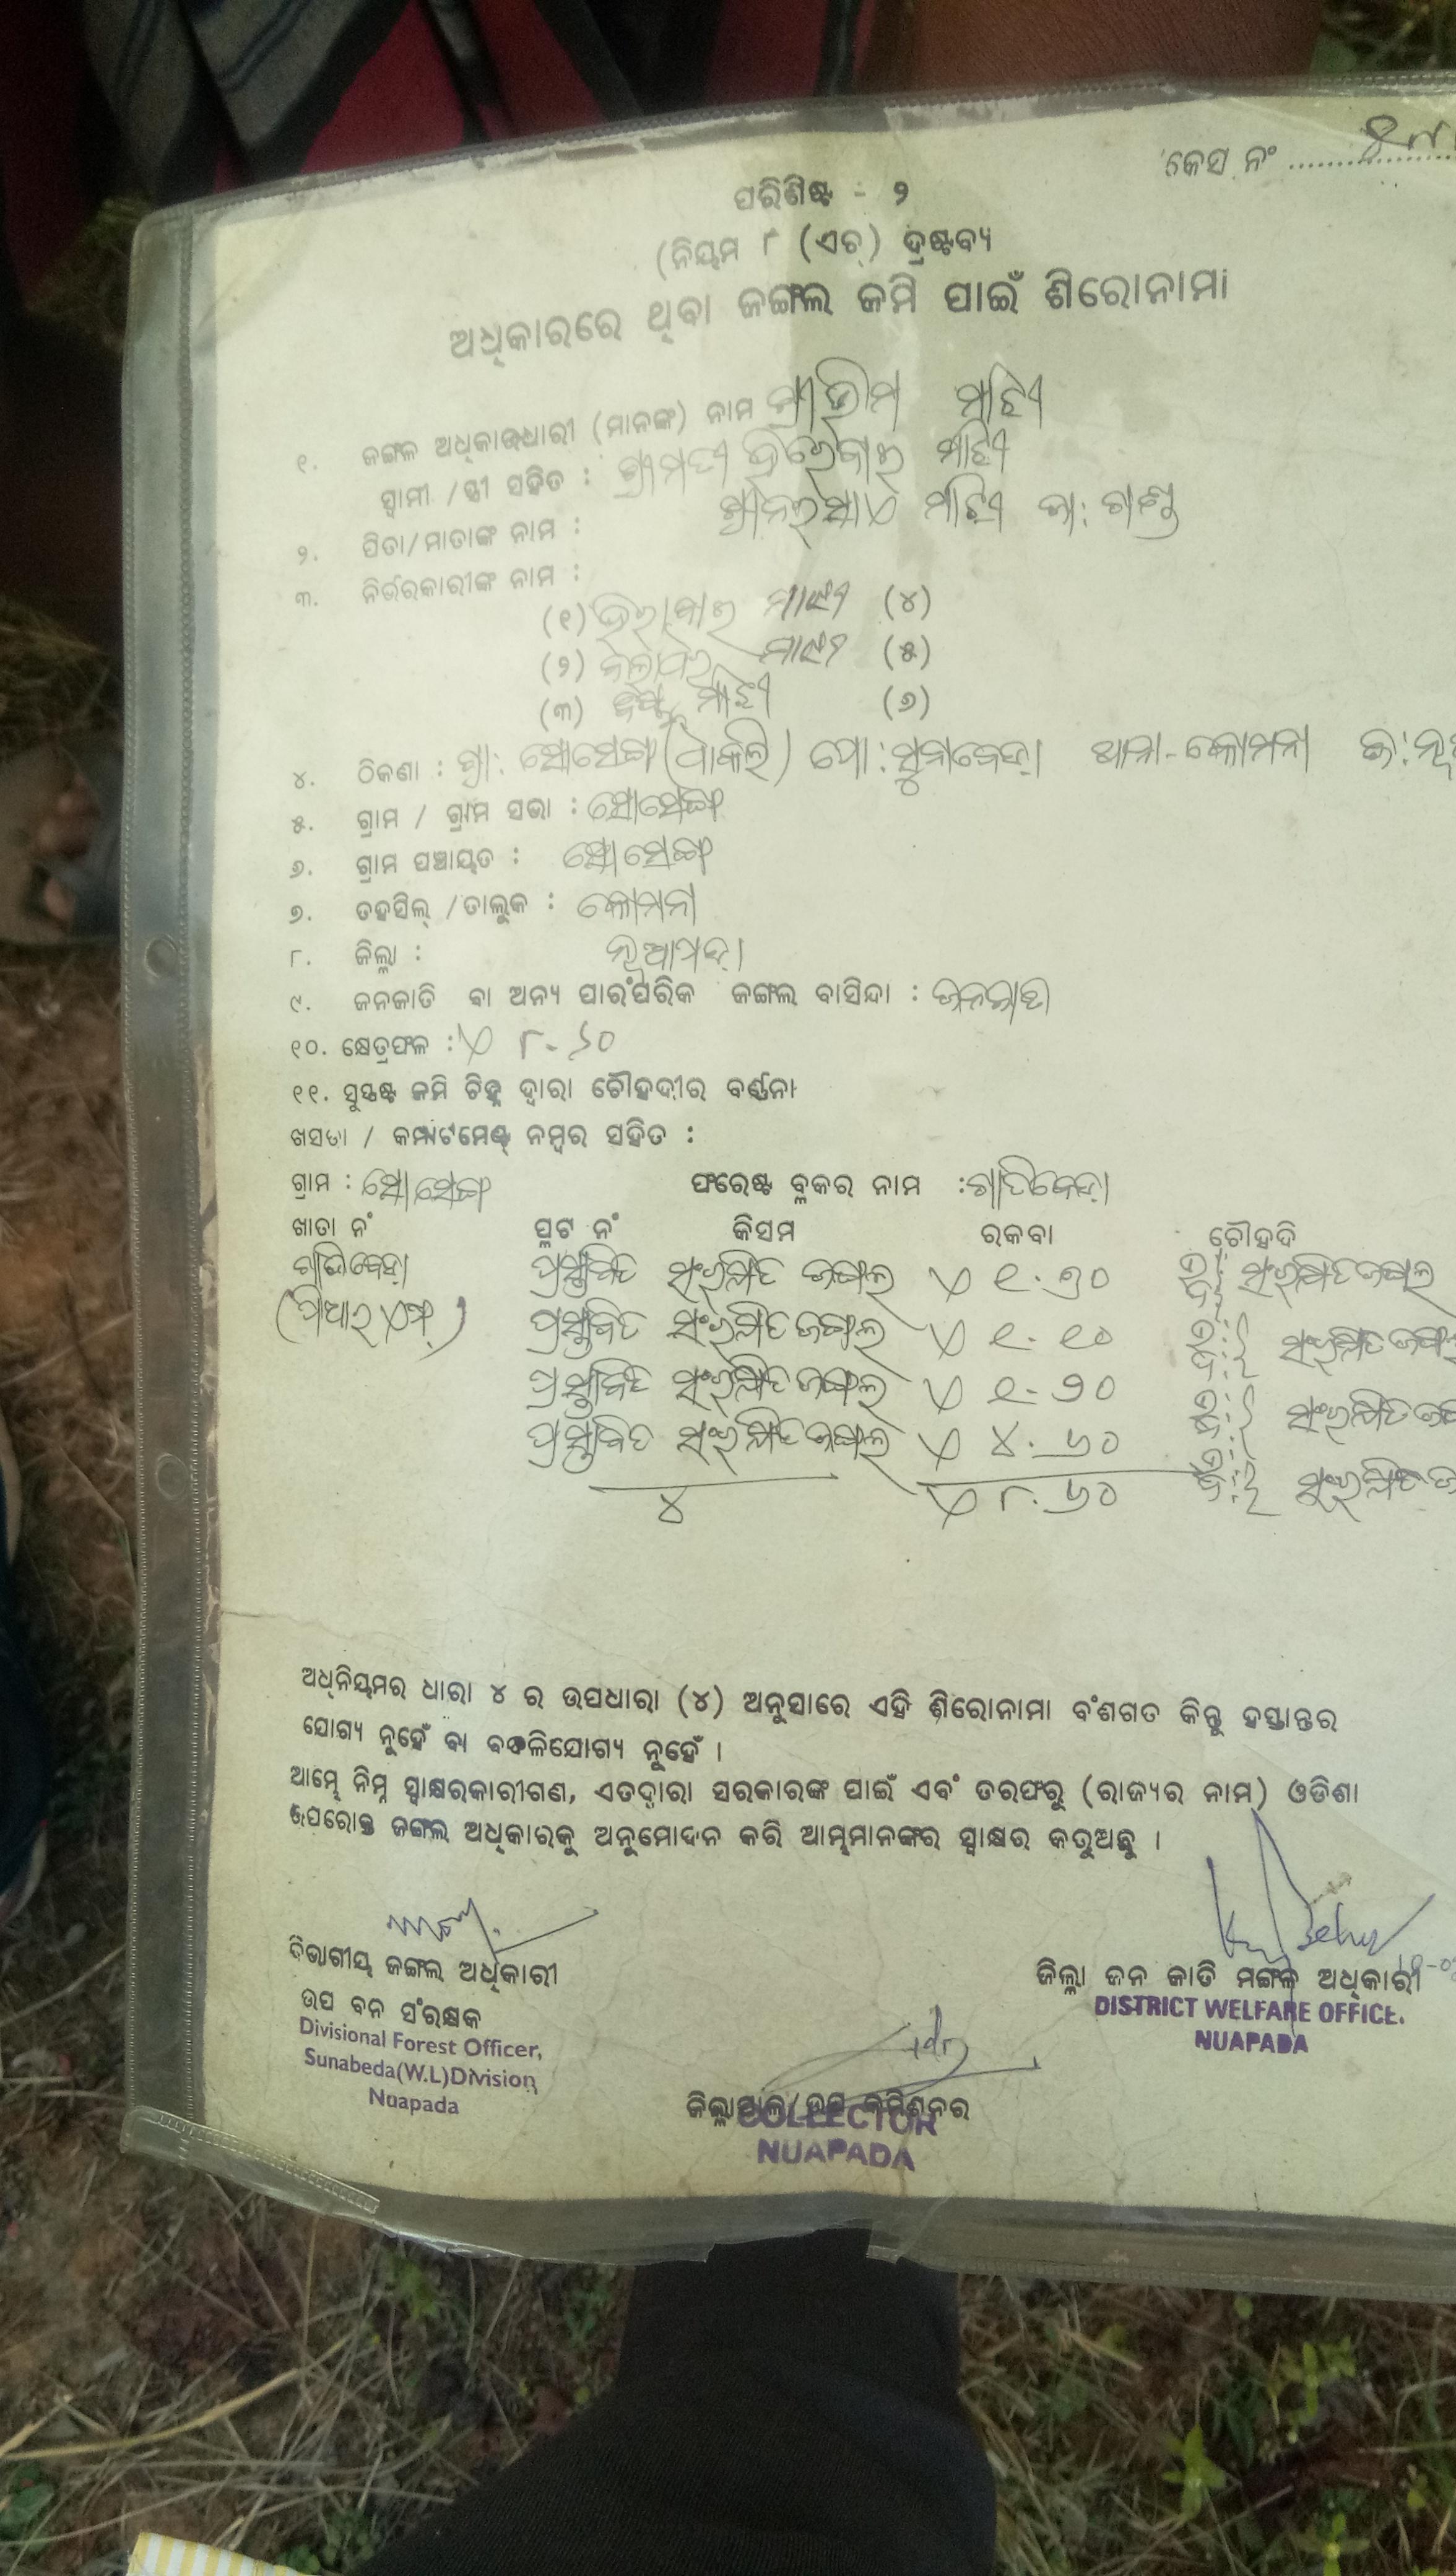 କେସ ନଂ
ପରିଶିଷ୍ଟ - ୨
(ନିୟମ ୮ (ଏଚ୍) ଦ୍ରଷ୍ଟବ୍ୟ
ଅଧିକାରରେ ଥିବା ଜଙ୍ଗଲ ଜମି ପାଇଁ ଶିରୋନାମା
୧. ଜଙ୍ଗଲ ଅଧିକାରଧାରୀ (ମାନଙ୍କ) ନାମ ଶ୍ରୀ ଭୀମ ମାଝି
ସ୍ୱାମୀ / ସ୍ତ୍ରୀ ସହିତ : ଶ୍ରୀମତୀ ମାଝି
୨. ପିତା/ମାତାଙ୍କ ନାମ : ମାଝି ଜା: ଗଣ୍ଡ
୩. ନିର୍ଭରକାରୀଙ୍କ ନାମ :
(୧) ମାଝୀ (୪)
(୨) ମାଝୀ (୫)
(୩) ମାଝି (୬)
୪. ଠିକଣା : ଗ୍ରା: ସୋସେଙ୍ଗ ପୋ: ସୁନାବେଡ଼ା ଥାନା-କୋମନା ଜି:
୫. ଗ୍ରାମ / ଗ୍ରାମ ସଭା : ସୋସେଙ୍ଗ
୬. ଗ୍ରାମ ପଞ୍ଚାୟତ : ସୋସେଙ୍ଗ
୭. ତହସିଲ୍ /ତାଲୁକ : କୋମନା
୮. ଜିଲ୍ଲା : ନୂଆପଡ଼ା
୯. ଜନଜାତି ବା ଅନ୍ୟ ପାରଂପରିକ ଜଙ୍ଗଲ ବାସିନ୍ଦା : ଜନଜାତି
୧୦. କ୍ଷେତ୍ରଫଳ : ଏ ୮-୬୦
୧୧. ସୁସ୍ପଷ୍ଟ ଜମି ଚିହ୍ନ ଦ୍ୱାରା ଚୌହଦୀର ବର୍ଣ୍ଣନା
ଖସଡା / କମ୍ପାର୍ଟମେଣ୍ଟ୍ ନମ୍ବର ସହିତ :
ଗ୍ରାମ : ସୋସେଙ୍ଗ ଫରେଷ୍ଟ ବ୍ଲକର ନାମ : ଗାତିବେଡ଼ା
ଖାତା ନଂ ପ୍ଲଟ ନଂ କିସମ ରକବା ଚୌହଦି
ଗାତିବେଡ଼ା ପ୍ରସ୍ତାବିତ ସଂରକ୍ଷିତ ଜଙ୍ଗଲ ଏ ୧.୭୦ ସଂରକ୍ଷିତ ଜଙ୍ଗଲ
(ପିଆର୍ ଏଫ୍) ପ୍ରସ୍ତାବିତ ସଂରକ୍ଷିତ ଜଙ୍ଗଲ ଏ ୧.୧୦ ସଂରକ୍ଷିତ ଜଙ୍ଗଲ
ପ୍ରସ୍ତାବିତ ସଂରକ୍ଷିତ ଜଙ୍ଗଲ ଏ ୧-୨୦ ସଂରକ୍ଷିତ
ପ୍ରସ୍ତାବିତ ସଂରକ୍ଷିତ ଜଙ୍ଗଲ ଏ ୪.୬୦ ସଂରକ୍ଷିତ
୪ ଏ ୮.୬୦
ଅଧିନିୟମର ଧାରା ୪ ର ଉପଧାରା (୪) ଅନୁସାରେ ଏହି ଶିରୋନାମା ବଂଶଗତ କିନ୍ତୁ ହସ୍ତାନ୍ତର
ଯୋଗ୍ୟ ନୁହେଁ ବା ବଦଳିଯୋଗ୍ୟ ନୁହେଁ ।
ଆମ୍ଭେ ନିମ୍ନ ସ୍ୱାକ୍ଷରକାରୀଗଣ, ଏତଦ୍ୱାରା ସରକାରଙ୍କ ପାଇଁ ଏବଂ ତରଫରୁ (ରାଜ୍ୟର ନାମ) ଓଡିଶା
ଉପରୋକ୍ତ ଜଙ୍ଗଲ ଅଧିକାରକୁ ଅନୁମୋଦନ କରି ଆମ୍ଭମାନଙ୍କର ସ୍ୱାକ୍ଷର କରୁଅଛୁ ।
ବିଭାଗୀୟ ଜଙ୍ଗଲ ଅଧିକାରୀ
ଉପ ବନ ସଂରକ୍ଷକ
Divisional Forest Officer,
Sunabeda(W.L)Division,
Nuapada
ଜିଲ୍ଲା ଜନ ଜାତି ମଙ୍ଗଳ ଅଧିକାରୀ
DISTRICT WELFARE OFFICE.
NUAPADA
ଜିଲ୍ଲାପାଳ/ଉପ କମିଶନର
COLLECTOR
NUAPADA